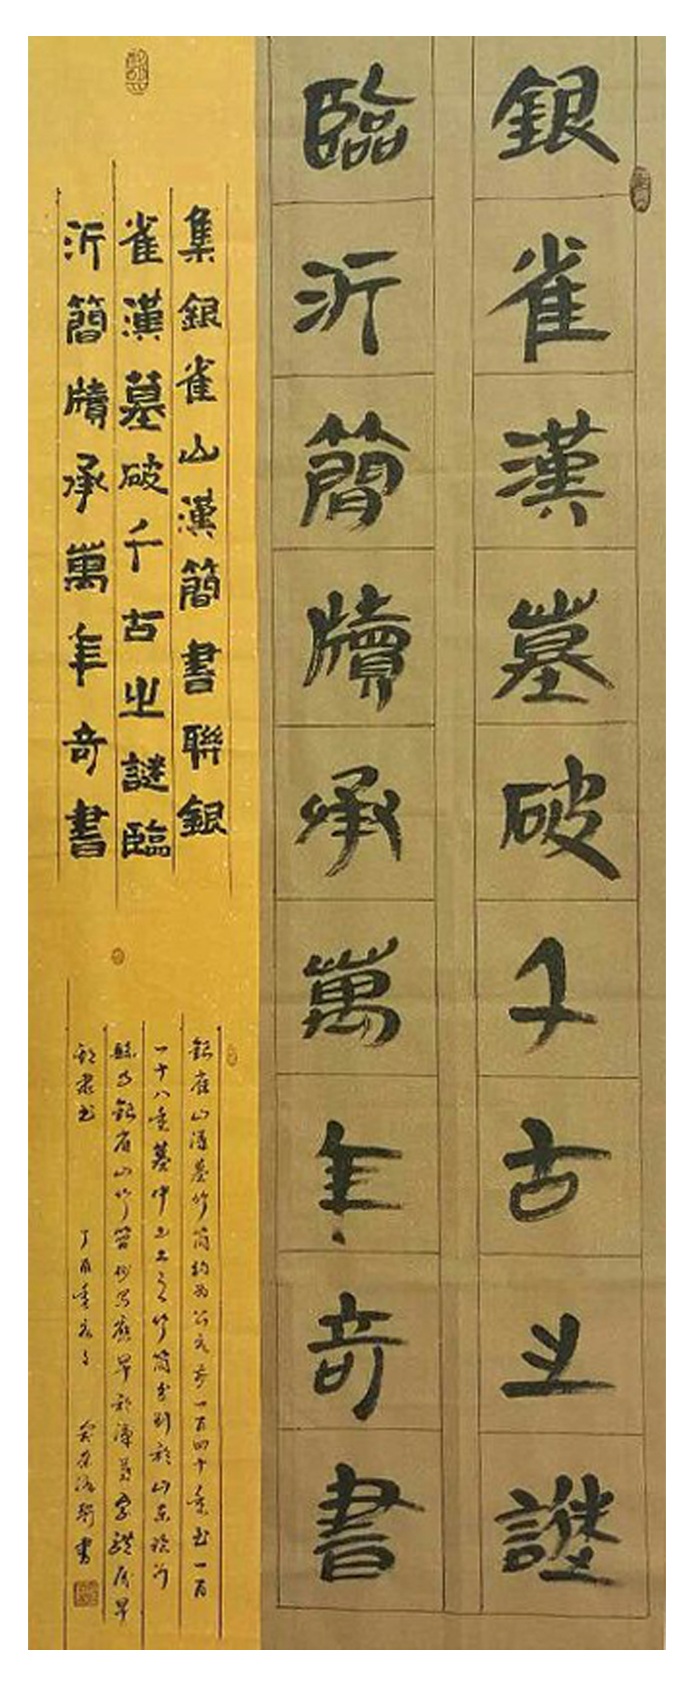 銀雀漢墓破千古之謎
臨沂簡牘承萬年奇書
集銀雀山漢簡書聯銀
雀漢墓破千古之謎臨
沂簡牘承萬年奇書
銀雀山漢墓竹簡約為公元前一百四十年至一百
一十八年墓中出土之竹簡
銀雀山竹簡
丁酉
書